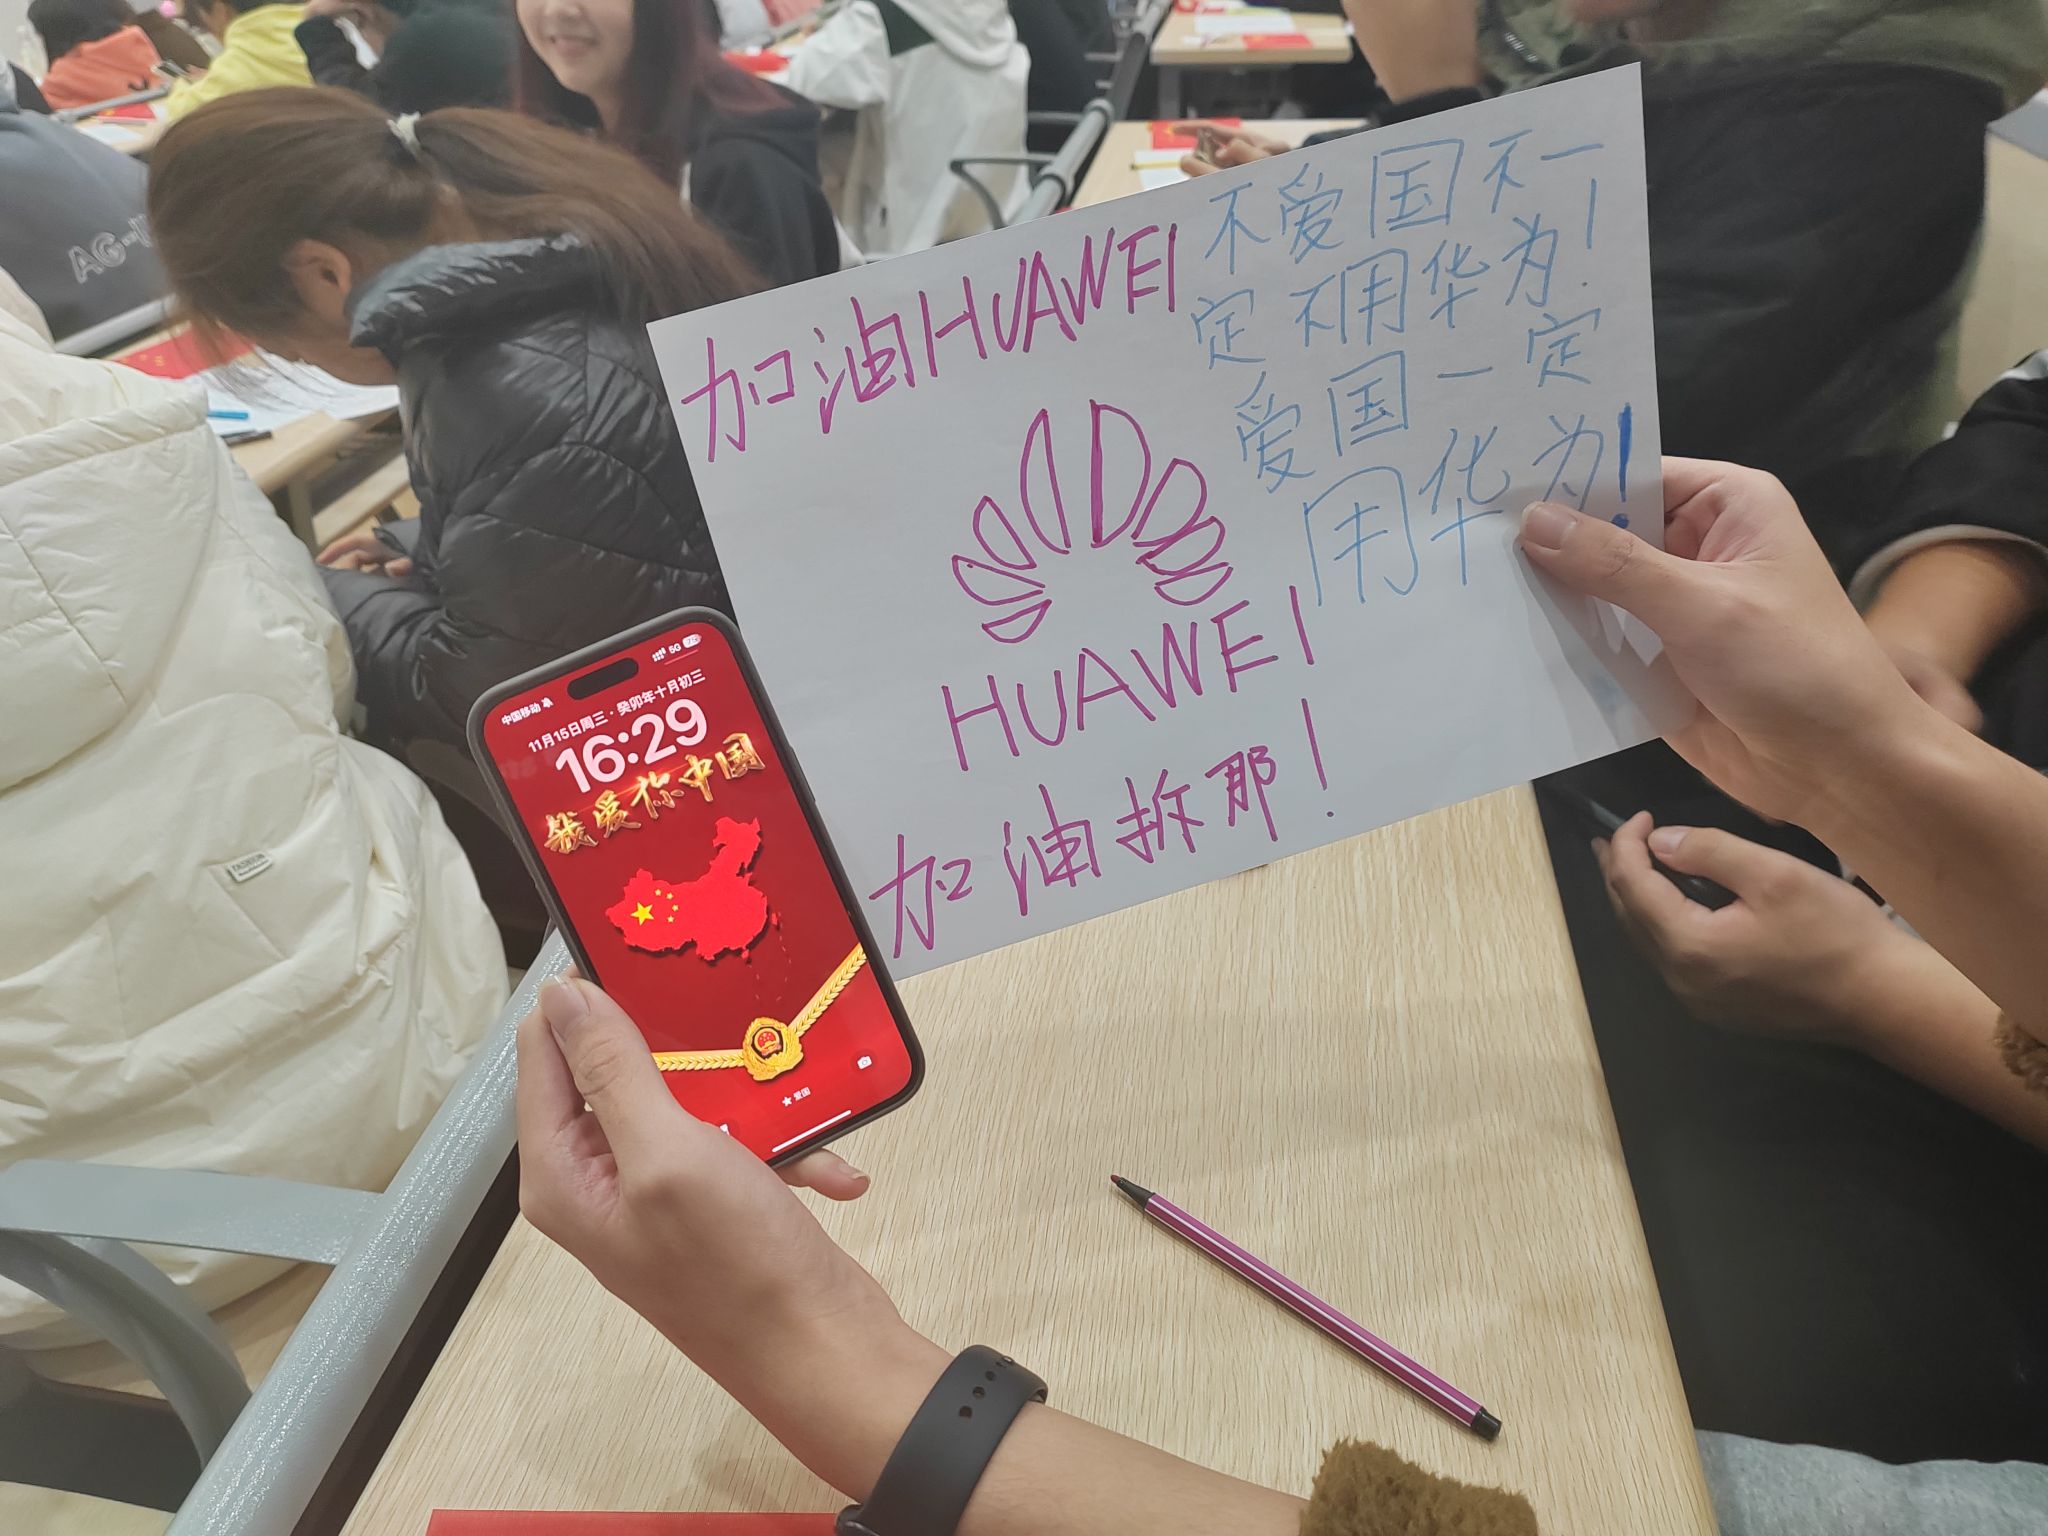 加油HUAWEI
HUAWEI
加油拆那！
不爱国不一
定不用华为！
爱国一定
用华为！
中国移动
5G
11月15日周三·癸卯年十月初三
16:29
我爱你中国
爱国
FASHION